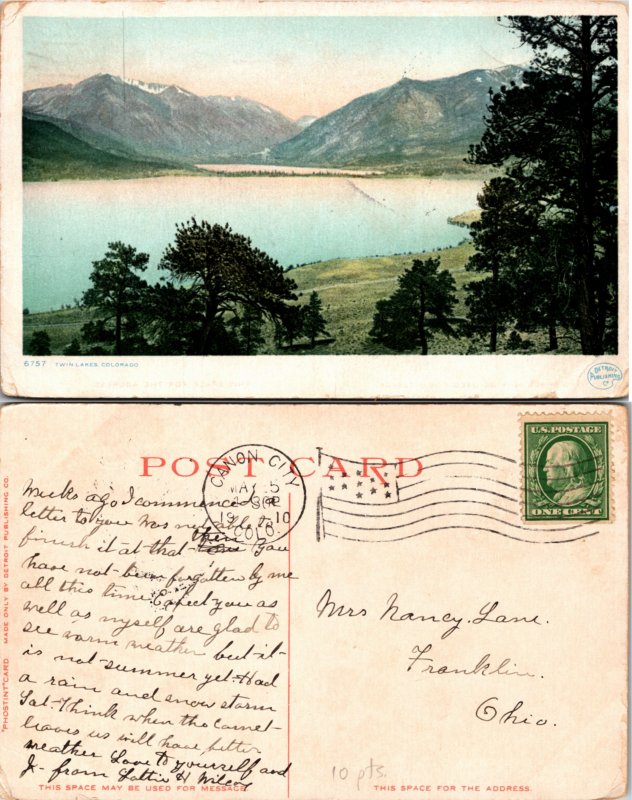 6757 TWIN LAKES, COLORADO
DETROIT
PUBLISHING
Co
POST CARD
CANON CITY
MAY 5
1910
COLO.
U.S. POSTAGE
ONE CENT
"PHOSTINT" CARD MADE ONLY BY DETROIT PUBLISHING CO.
Weeks ago I commenced a
letter to you was not able to
finish it at that time then You
have not been forgotten by me
all this time. Expect you as
well as myself are glad to
see warm weather but it
is not summer yet. Had
a rain and snow storm
Sat. Think when the comet
leaves us will have better
weather Love to yourself and
J- from Lottie H Wilcox
Mrs Nancy Lane.
Franklin.
Ohio.
10 pts.
THIS SPACE MAY BE USED FOR MESSAGE
THIS SPACE FOR THE ADDRESS.